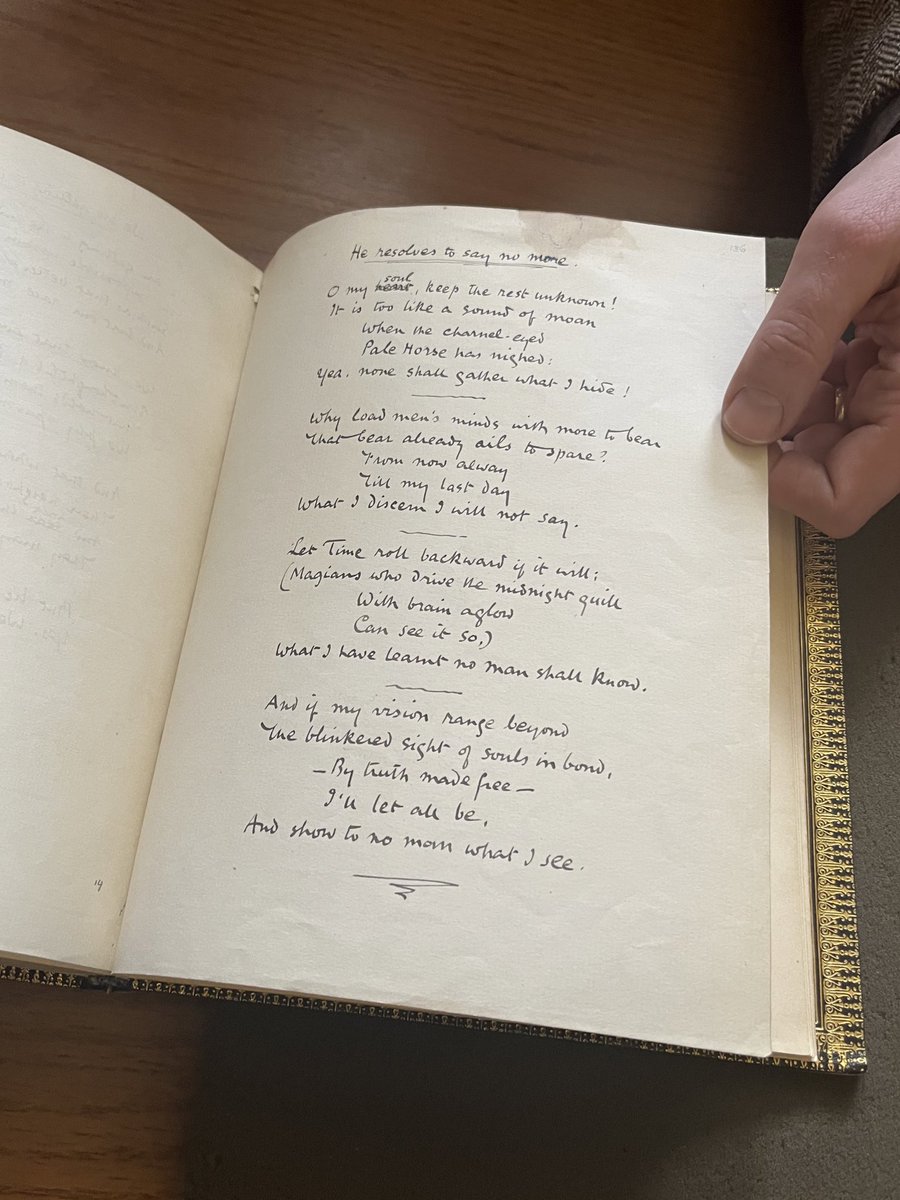 186
He resolves to say no more.
O my heart soul, keep the rest unknown!
It is too like a sound of moan
When the charnel-eyed
Pale Horse has nighed:
Yea, none shall gather what I hide!
Why load men's minds with more to bear
That bear already ails to spare?
From now alway
Till my last day
What I discern I will not say.
Let Time roll backward if it will;
(Magians who drive the midnight quill
With brain aglow
Can see it so,)
What I have learnt no man shall know.
And if my vision range beyond
The blinkered sight of souls in bond,
—By truth made free—
I'll let all be,
And show to no man what I see.
14